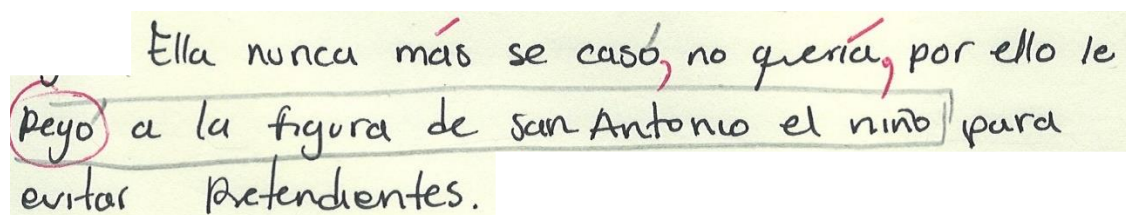 Ella nunca más se casó, no quería, por ello le
peyó a la figura de san Antonio el niño para
evitar pretendientes.